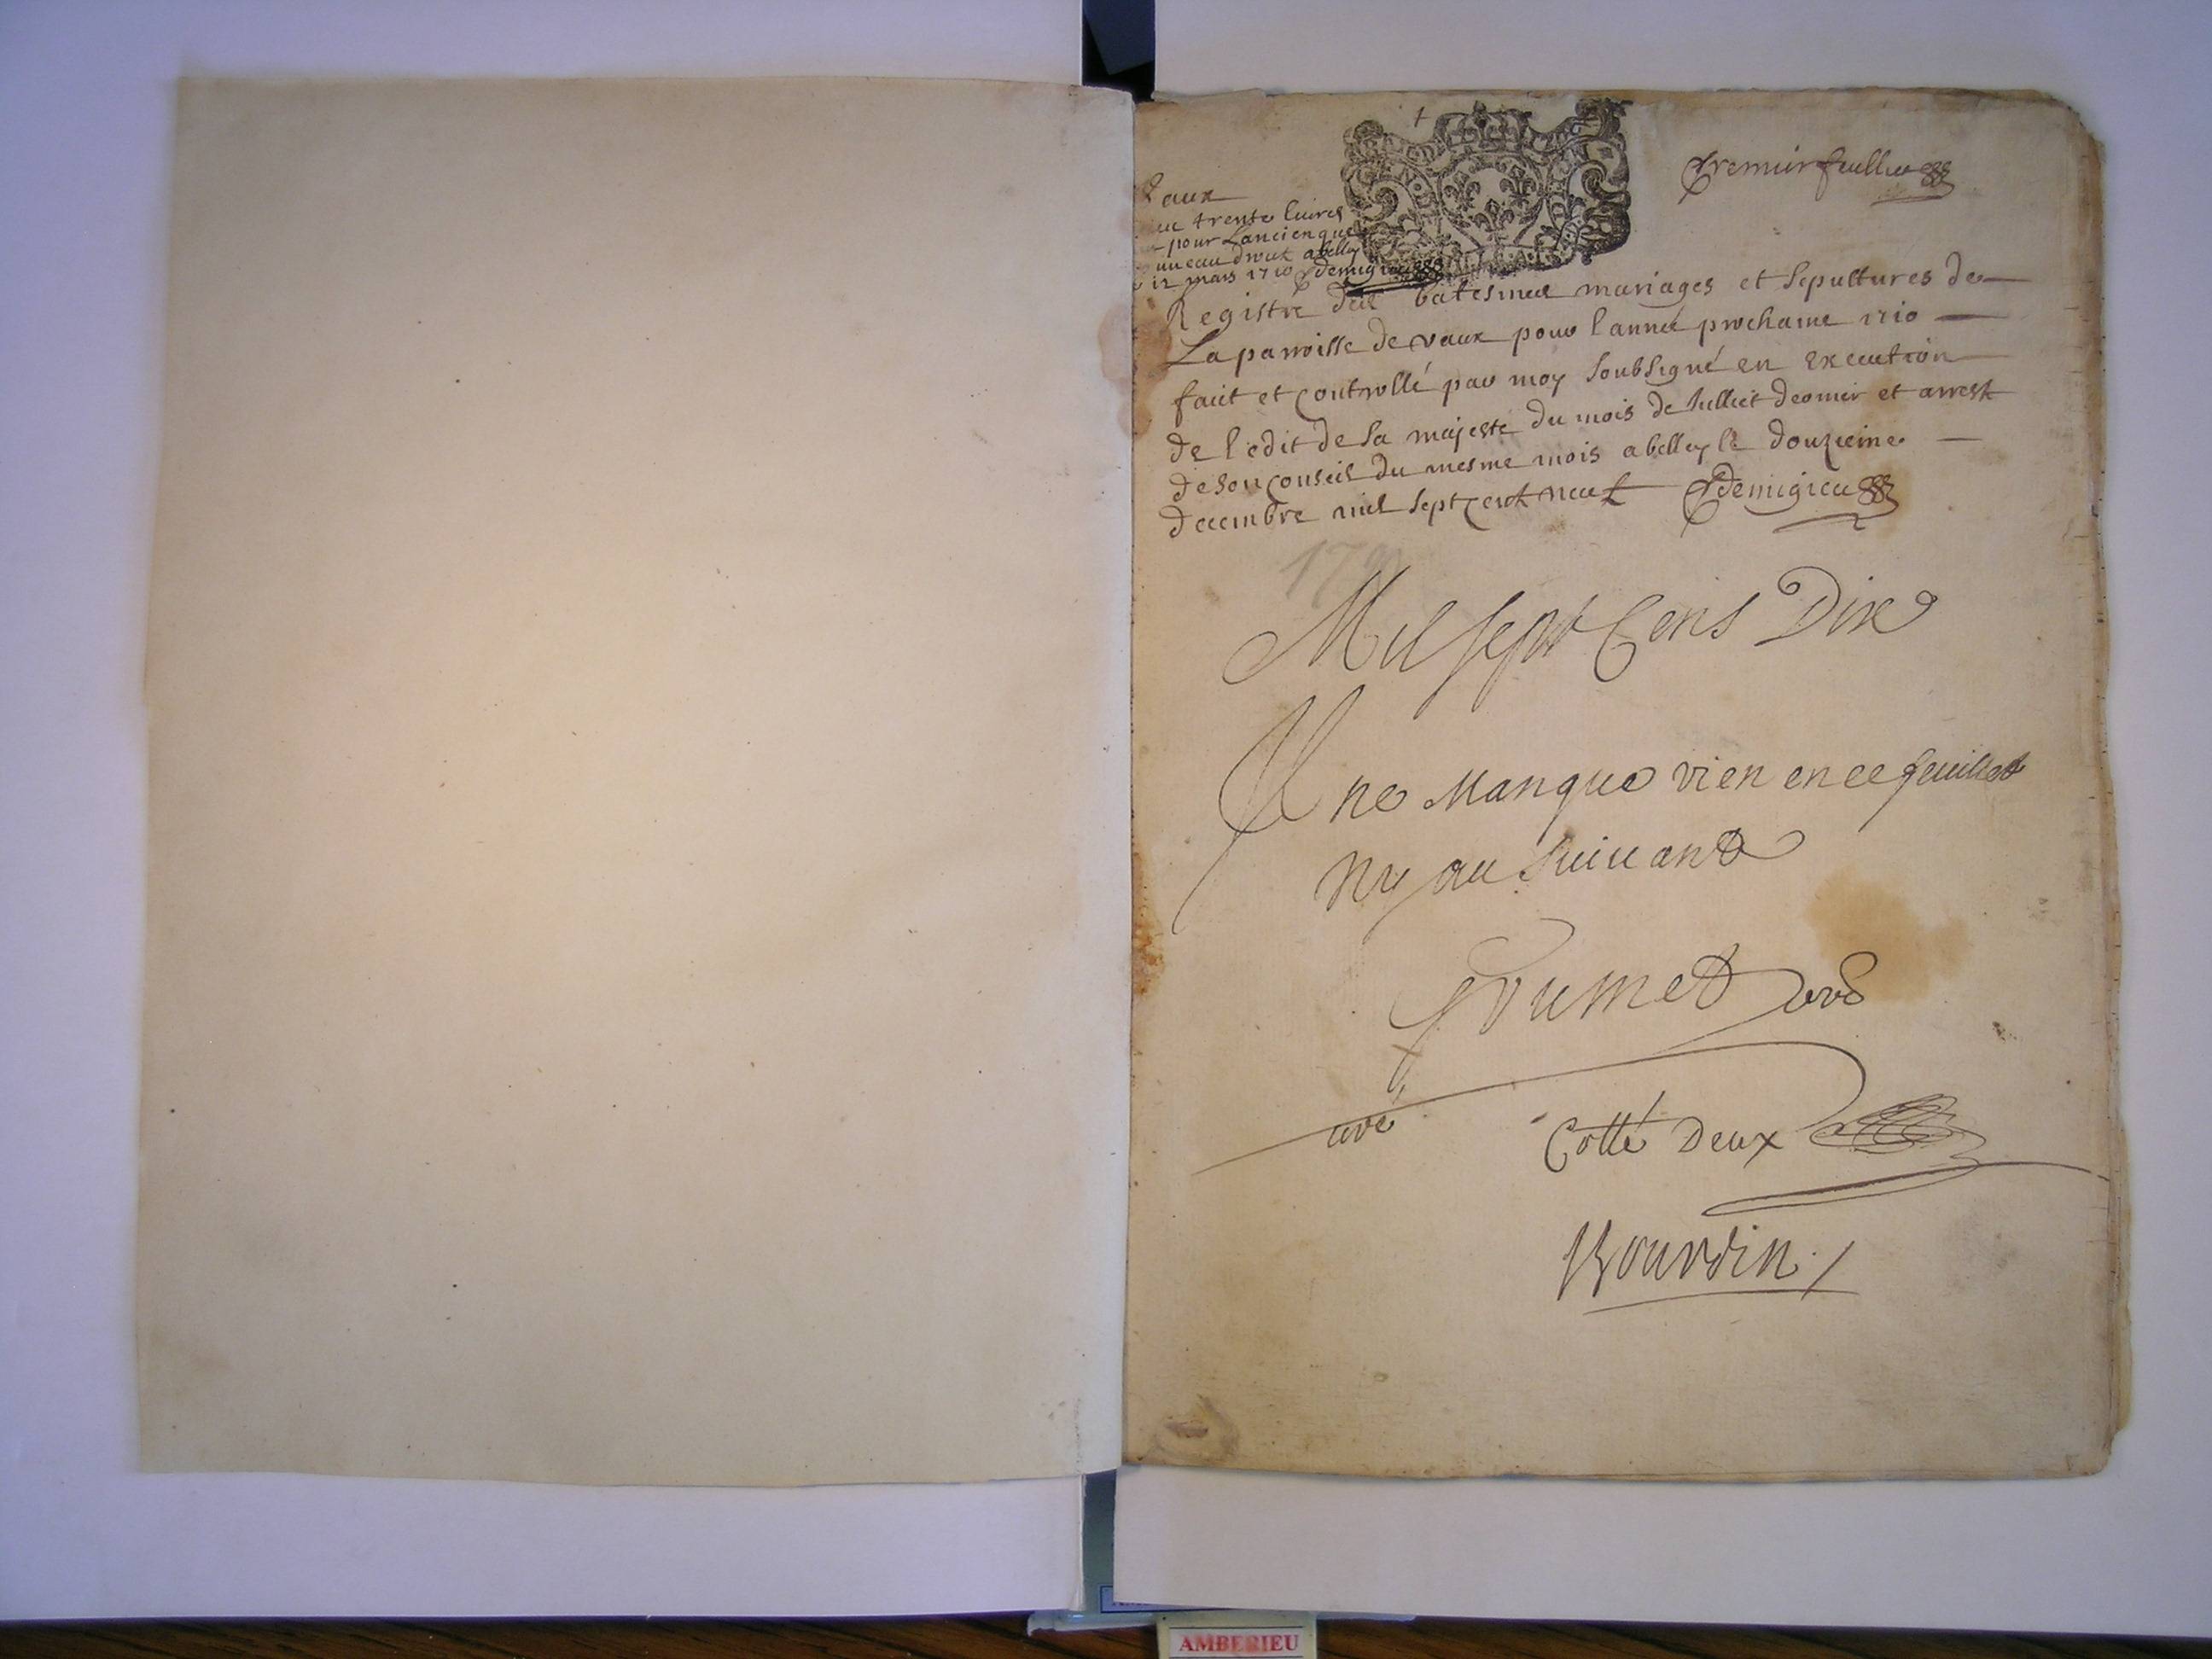 Premier feuillet
Vaux
trente livres
pour Lancien que
abelley
12 mars 1710 Demigieu
Registre des batesmes mariages et sepultures de
La parroisse de vaux pour l'année prochaine 1710
fait et controllé par moy soubsigné en execution
de l'edit de sa majesté du mois de Julliet dernier et arrest
de son conseil du mesme mois a belley le douzieme
decembre mil sept cent neuf Demigieu
Mil sept Cens Dix
Il ne Manque rien en ce feuillet
Ny au Suiuant
curé
Cotté Deux
Bourdin
AMBERIEU